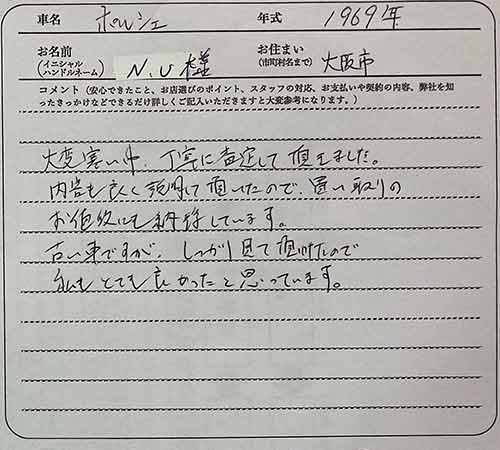 車名 ポルシェ 年式 1969年
お名前 (イニシャル ハンドルネーム) N.U 様 お住まい (市町村名まで) 大阪市
コメント(安心できたこと、お店選びのポイント、スタッフの対応、お支払いや契約の内容、弊社を知
ったきっかけなどできるだけ詳しくご記入いただきますと大変参考になります。)
大変寒い中、丁寧に査定して頂きました。
内容も良く説明して頂いたので、買い取りの
お値段にも納得しています。
古い車ですが、しっかり見て頂けたので
私もとても良かったと思っています。